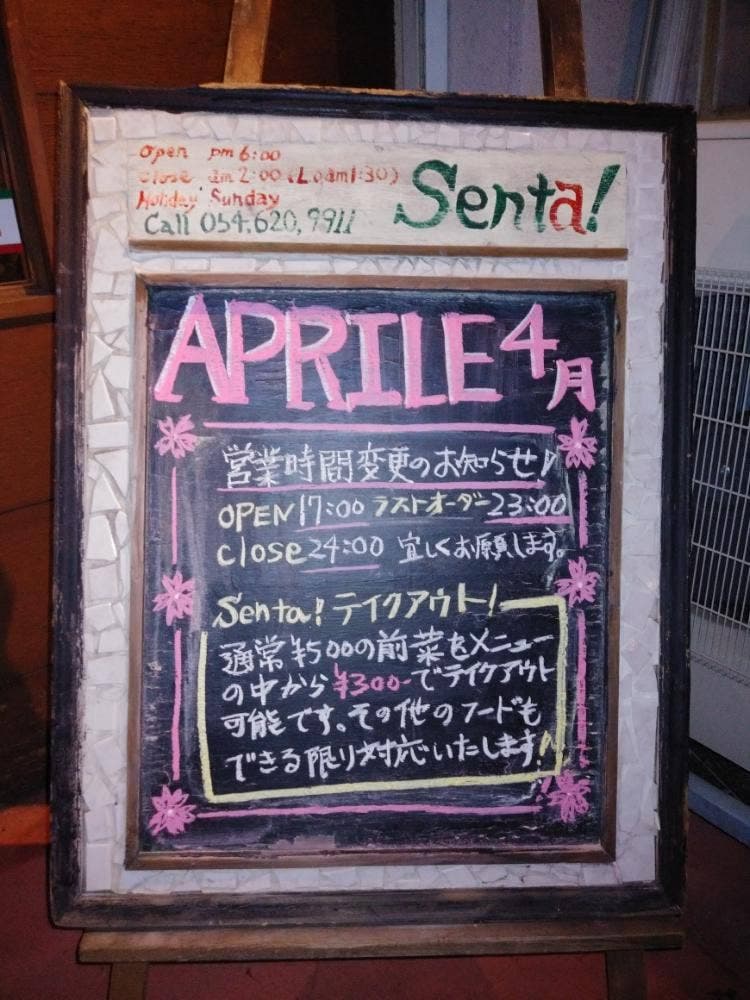 Open pm 6:00
close am 2:00 (L.o am1:30)
Holiday Sunday
Call 054.620.9911
Senta!
APRILE 4月
営業時間変更のお知らせ!
OPEN 17:00 ラストオーダー 23:00
close 24:00 宜しくお願します。
Senta! テイクアウト!
通常¥500の前菜をメニュー
の中から¥300-でテイクアウト
可能です。その他のフードも
できる限り対応いたします!